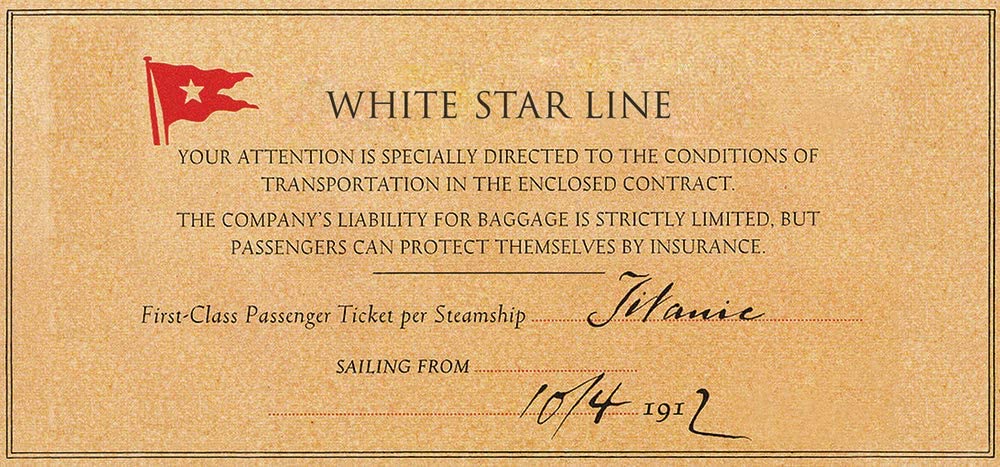 WHITE STAR LINE
YOUR ATTENTION IS SPECIALLY DIRECTED TO THE CONDITIONS OF
TRANSPORTATION IN THE ENCLOSED CONTRACT.
THE COMPANY'S LIABILITY FOR BAGGAGE IS STRICTLY LIMITED, BUT
PASSENGERS CAN PROTECT THEMSELVES BY INSURANCE.
First-Class Passenger Ticket per Steamship Titanic
SAILING FROM
10/4 1912